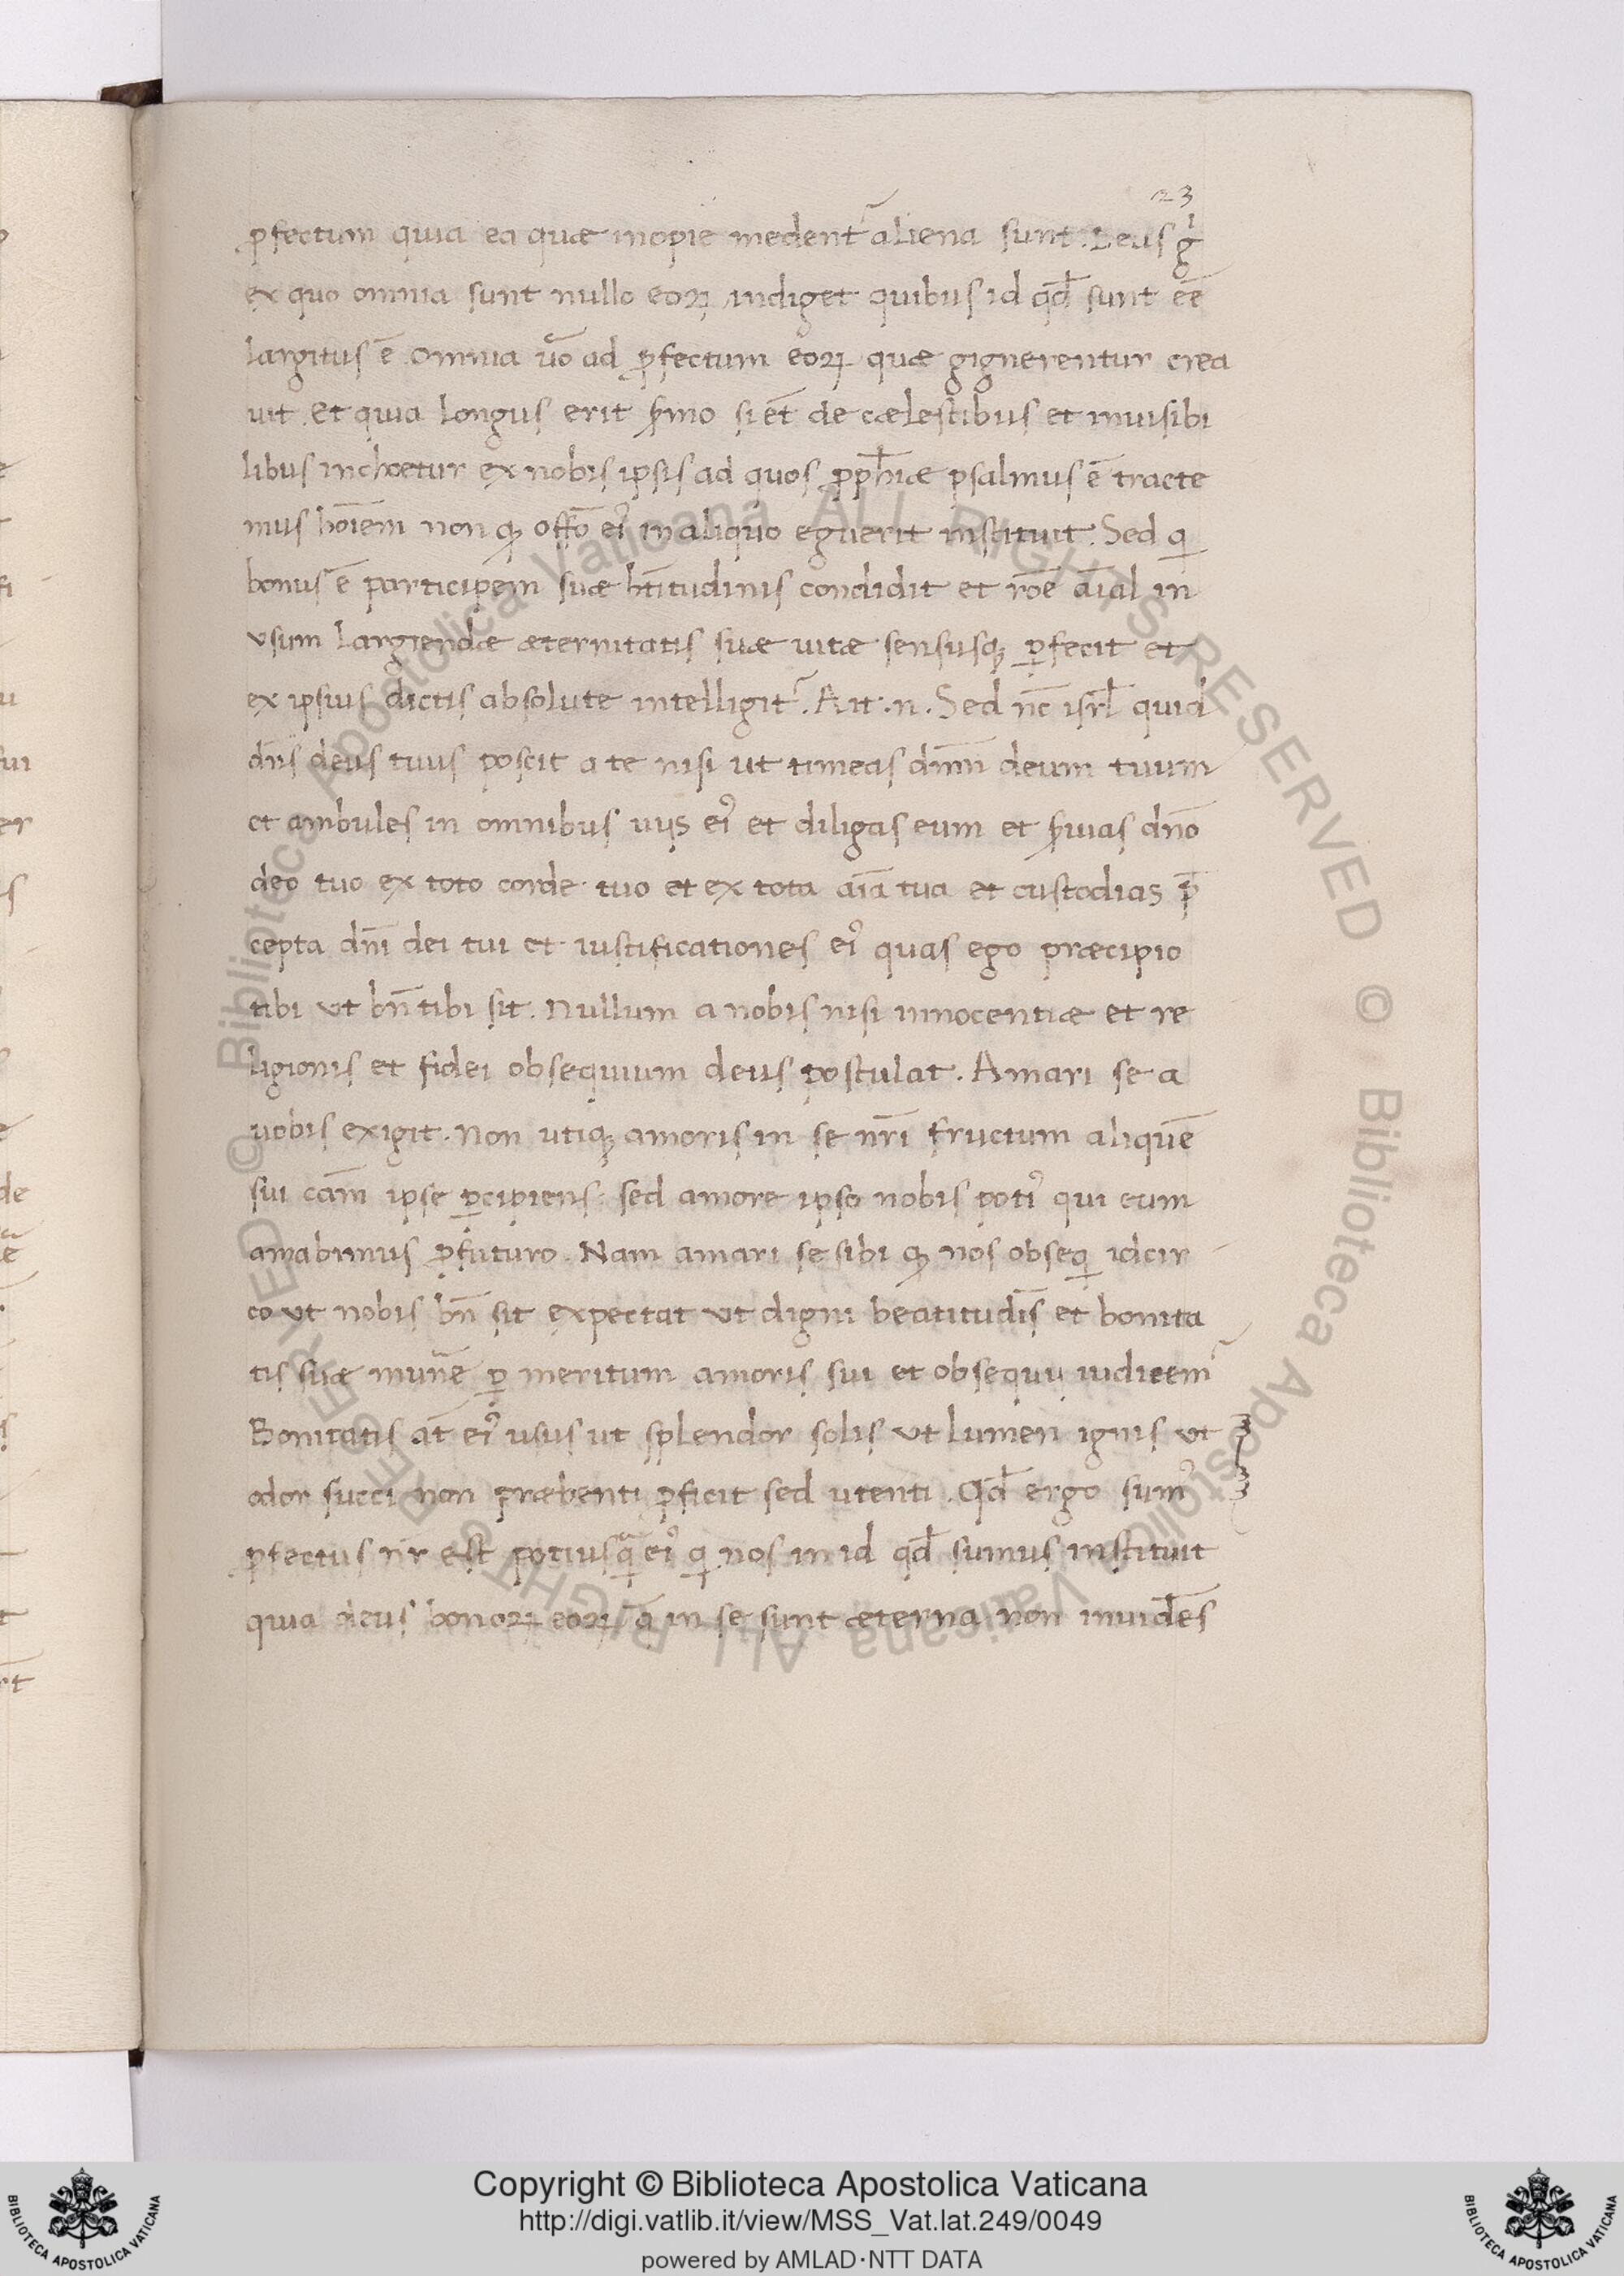 23
ꝓfectum quia ea quæ inopie medent᷑ aliena sunt. Deus gͥ
ex quo omnia sunt nullo eoꝝ indiget quibus id qd̄ sunt eē
largitus ē. omnia uo᷑ ad ꝓfectum eoꝝ quæ gignerentur crea
uit. et quia longus erit ẜmo si et̄ de cælestibus et inuisibi
libus inchoetur ex nobis ipsis ad quos ꝓph̄iæ psalmus ē tracte
mus hoīem non qꝫ offō eiꝰ in aliquo eguerit instituit. Sed ꝗ
bonus ē participem suæ bt̄itudinis condidit et rōe aīal in
vsum largiendæ æternitatis suæ uitæ sensusqꝫ ꝑfecit et
ex ipsius dictis absolute intelligit᷑. Ait .n. Sed nc̄ isrl̄ quid
dn̄s deus tuus poscit a te nisi ut timeas dn̄m deum tuum
et ambules in omnibus uijs eiꝰ et diligas eum et ẜuias dn̄o
deo tuo ex toto corde tuo et ex tota aīa tua et custodias p̄
cepta dn̄i dei tui et iustificationes eiꝰ quas ego præcipio
tibi vt bn̄ tibi sit. Nullum a nobis nisi innocentiæ et re
ligionis et fidei obsequium deus postulat. Amari se a
nobis exigit. Non utiqꝫ amoris in se nr̄i fructum aliquē
sui cām ipse ꝑcipiens: sed amore ipso nobis potiꝰ qui eum
amabimus ꝓfuturo. Nam amari se sibi qꝫ nos obseꝗ idcir
co vt nobis bn̄ sit expectat vt digni beatitudīs et bonita
tis suæ mun᷑e ꝑ meritum amoris sui et obsequij iudicem᷑
Bonitatis at̄ eiꝰ usus ut splendor solis vt lumen ignis vt
odor succi non præbenti ꝓficit sed utenti. Qd̄ ergo sumꝰ
ꝓfectus nr̄ est potius ꝗ̃ eiꝰ ꝗ nos in id qd̄ sumus instituit
quia deus bonoꝝ eoꝝ q̄ in se sunt æterna non inuidēs
Copyright © Biblioteca Apostolica Vaticana
http://digi.vatlib.it/view/MSS_Vat.lat.249/0049
powered by AMLAD·NTT DATA
BIBLIOTECA APOSTOLICA VATICANA
BIBLIOTECA APOSTOLICA VATICANA
© Biblioteca Apostolica Vaticana ALL RIGHTS RESERVED © Biblioteca Apostolica Vaticana ALL RIGHTS RESERVED